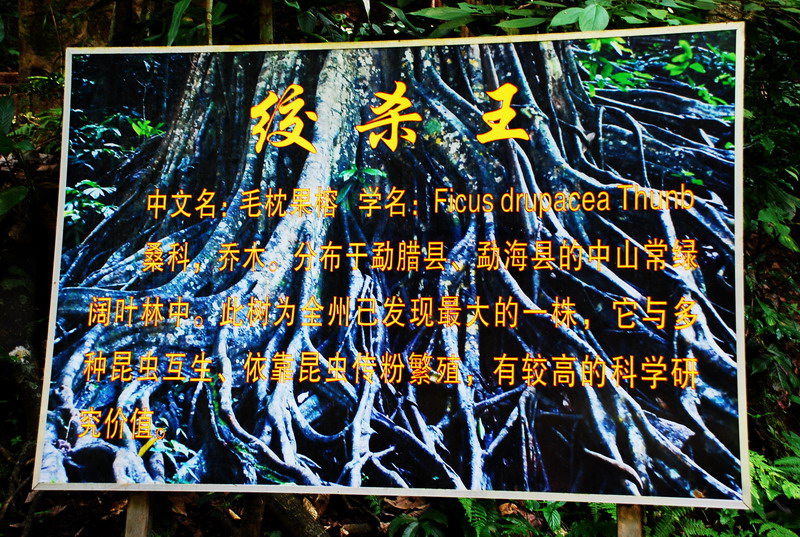 绞杀王
中文名：毛枕果榕 学名：Ficus drupacea Thunb
桑科，乔木。分布于勐腊县、勐海县的中山常绿
阔叶林中。此树为全州已发现最大的一株，它与多
种昆虫互生、依靠昆虫传粉繁殖，有较高的科学研
究价值。